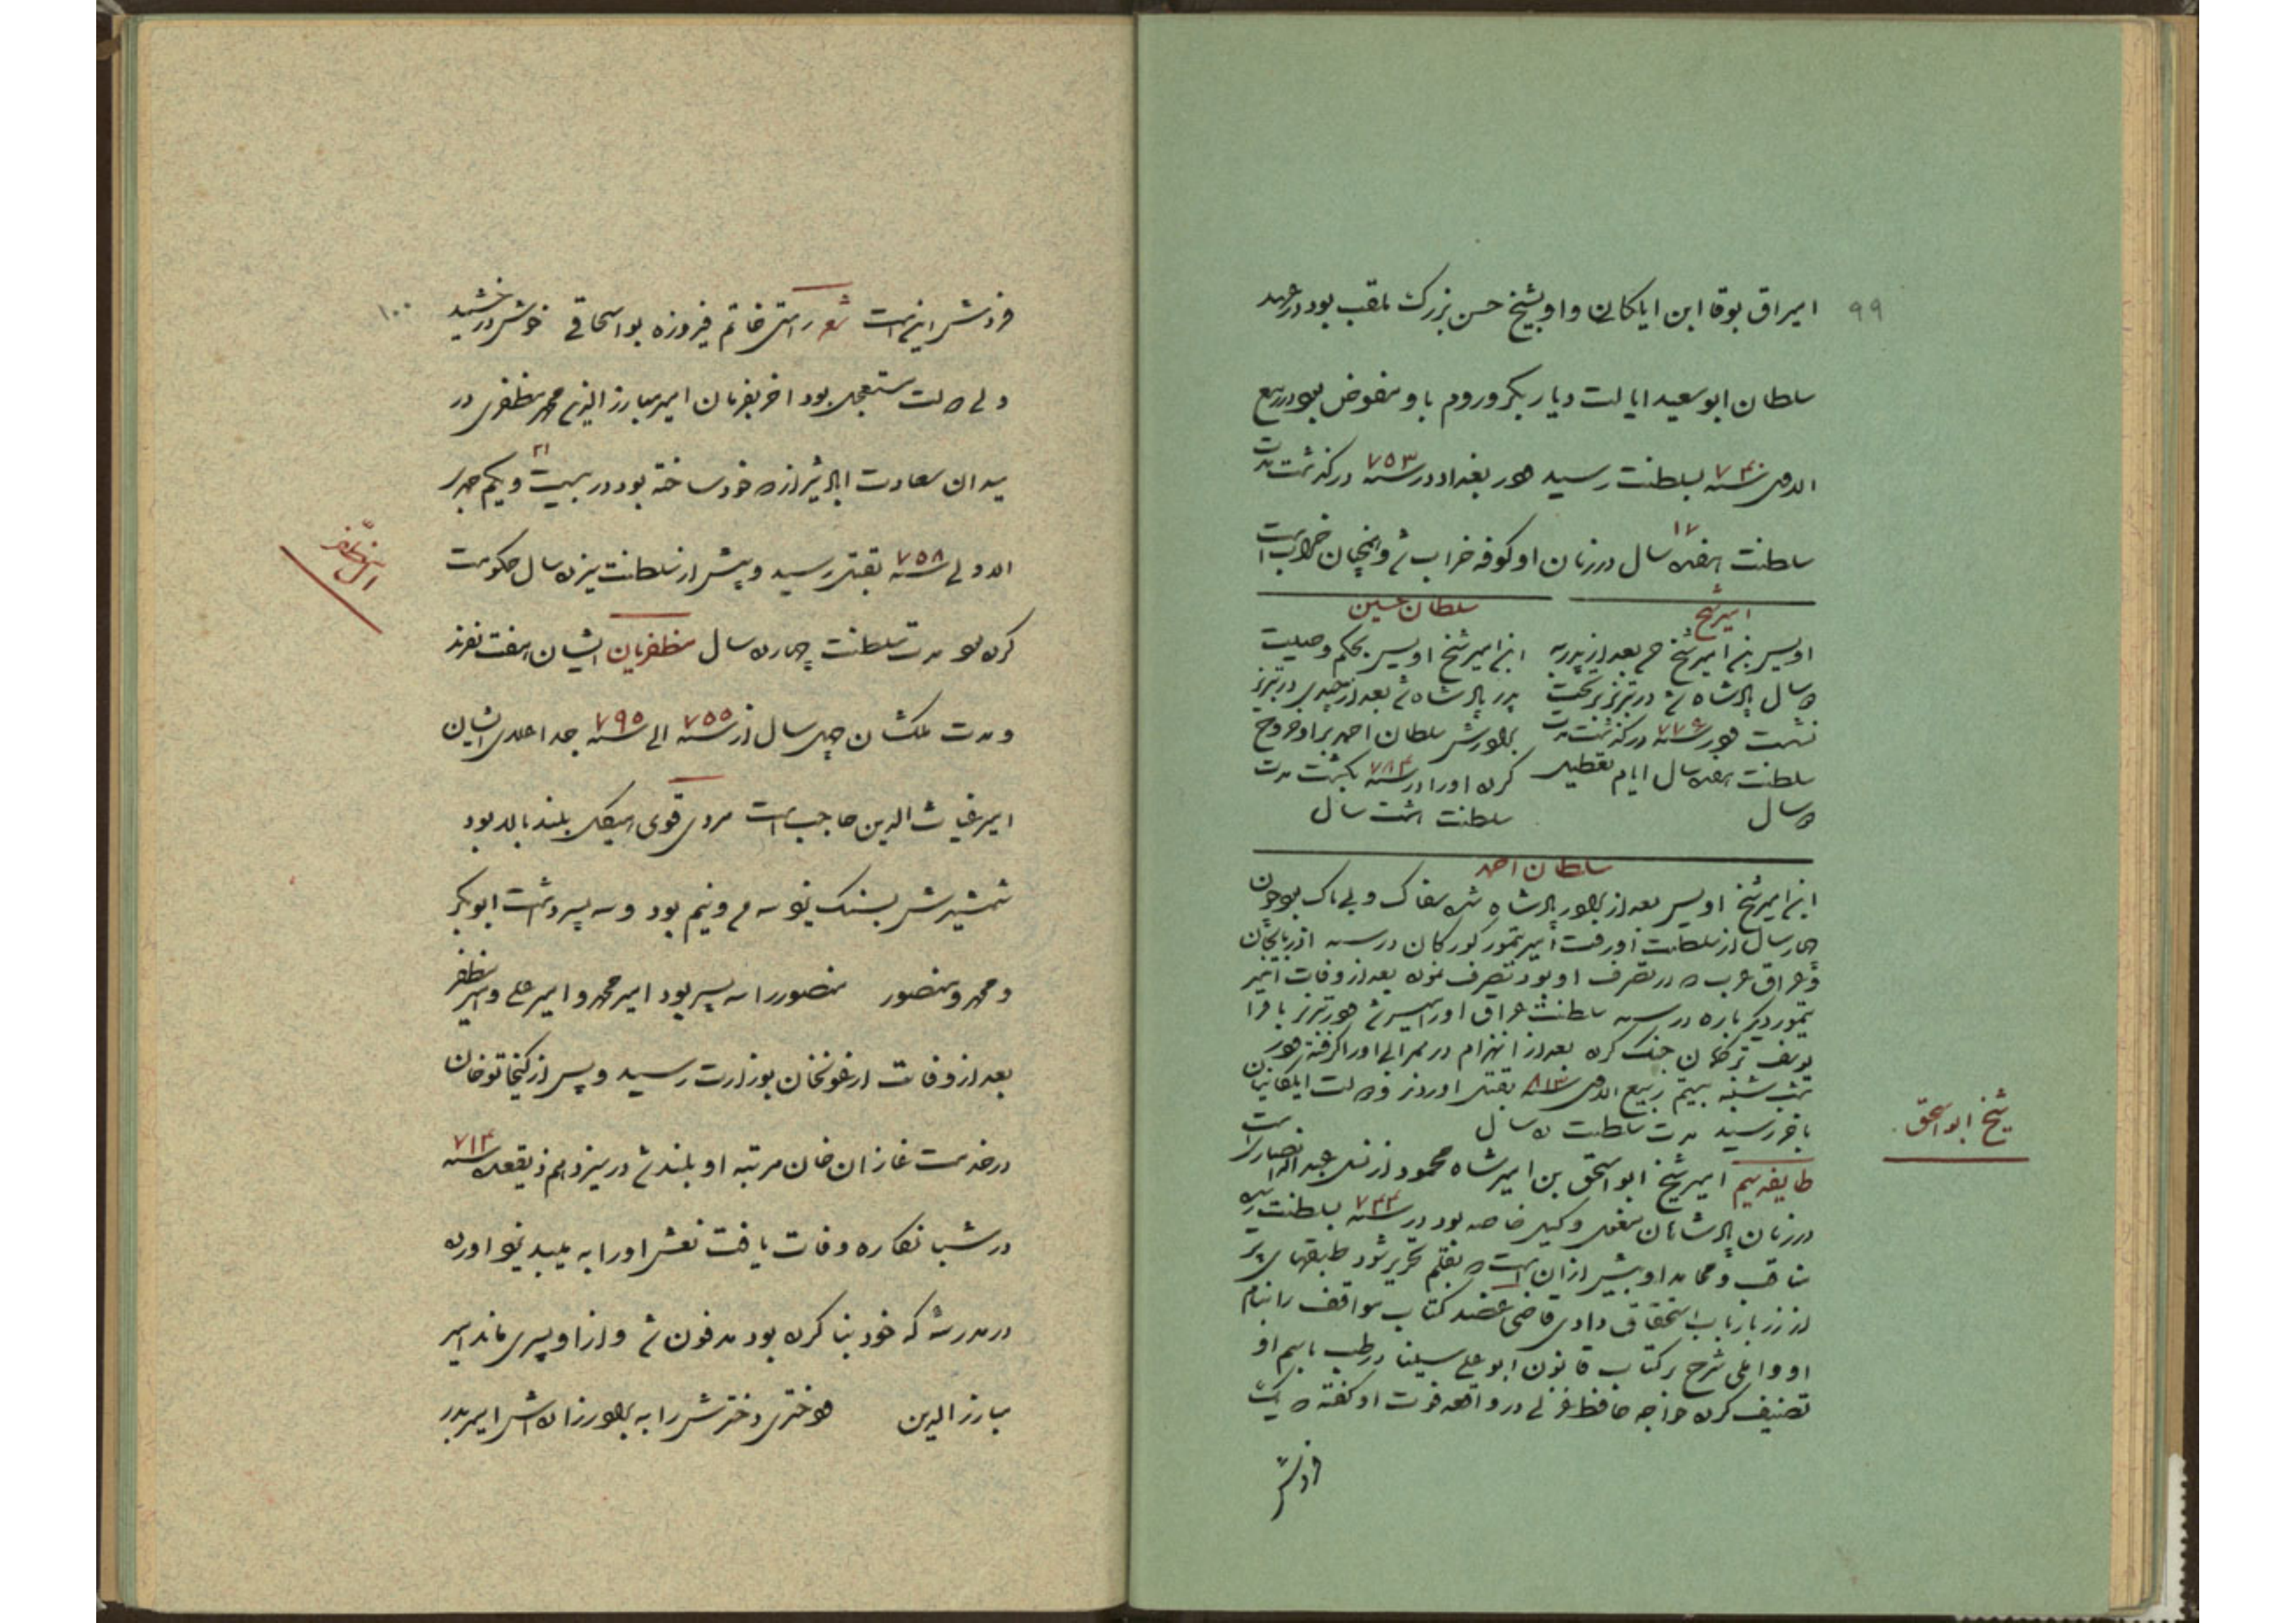 ۹۹
امیراق بوقا ابن ایلکان و او بشیخ حسن بزرک ملقب بود در عهد
سلطان ابوسعید ایالت دیار بکر و روم باو مفوض بود در ربیع
الاول سنه ۷۴۰ بسلطنت رسید در بغداد در سنه ۷۵۳ درکذشت مدت
سلطنت هفده سال ۱۷ در زمان او کوفه خراب شد و همچنان خرابست
امیر شیخ
اویس بن امیر شیخ حسن بعد از پدر به
سال پادشاه شد در تبریز بر تخت
نشست در سنه ۷۷۶ درکذشت مدت
سلطنت هفده سال ایام تعطیل
سال
سلطان حسین
ابن امیر شیخ اویس بحکم وصیت
پدر پادشاه شد بعد از چندی در تبریز
برادرش سلطان احمد بر او خروج
کرده او را در سنه ۷۸۴ بکشت مدت
سلطنت هشت سال
سلطان احمد
ابن امیر شیخ اویس بعد از برادر پادشاه شد سفاک و بی باک بود چون
چهار سال از سلطنت او رفت امیر تیمور کورکان در سنه اذربایجان
و عراق عرب که در تصرف او بود تصرف نمود بعد از وفات امیر
تیمور دیکر باره در سنه سلطنت عراق او را میسر شد در تبریز با قرا
یوسف ترکمان جنک کرده بعد از انهزام او را کرفته در
شب شنبه بیستم ربیع الاول سنه ۸۱۳ بقتل اوردند دولت ایلکانیان
باخر رسید مدت سلطنت سال
شیخ ابو اسحق
طایفه سیم امیر شیخ ابو اسحق بن امیر شاه محمود از نسل عبد الله انصاریست
در زمان پادشاهان مغول وکیل خاصه بود در سنه ۷۴۴ بسلطنت رسیده
مناقب و محامد او بیش از آن است که بقلم تحریر شود طبقهای پر
از زر بارباب استحقاق دادی قاضی عضد کتاب مواقف را بنام
او و املی شرح بر کتاب قانون ابو علی سینا در طب باسم او
تصنیف کرده خواجه حافظ غزلی در واقعه فوت او کفته که یک
فردش
۱۰۰
فردش اینست شعر راستی خاتم فیروزه بواسحاقی خوش درخشید
ولی دولت مستعجل بود اخر بفرمان امیر مبارز الدین محمد مظفری در
میدان سعادت اباد شیراز که خود ساخته بود در بیست و یکم ۲۱ جمادی
الاولی سنه ۷۵۸ بقتل رسید و پیش از سلطنت نیز ده سال حکومت
ال مظفر
کرده بود مدت سلطنت چهارده سال مظفریان ایشان هفت نفرند
و مدت ملکشان چهل سال از سنه ۷۵۵ الی سنه ۷۹۵ جد اعلای ایشان
امیر غیاث الدین حاجب است مردی قوی هیکل بلند بالا بود
شمشیرش بسنک یزد سه من و نیم بود و سه پسر داشت ابوبکر
و محمد و منصور منصور را سه پسر بود امیر محمد و امیر علی و امیر مظفر
بعد از وفات ارغونخان بوزارت رسید و پس از کیخاتو خان
در خدمت غازان خان مرتبه او بلند شد در سیزدهم ذیقعده سنه ۷۱۳
در شبانکاره وفات یافت نعش او را به میبد یزد اورده
در مدرسه که خود بنا کرده بود مدفون شد و از او پسری ماند امیر
مبارز الدین دختری دخترش را به برادر زاده اش امیر بدر